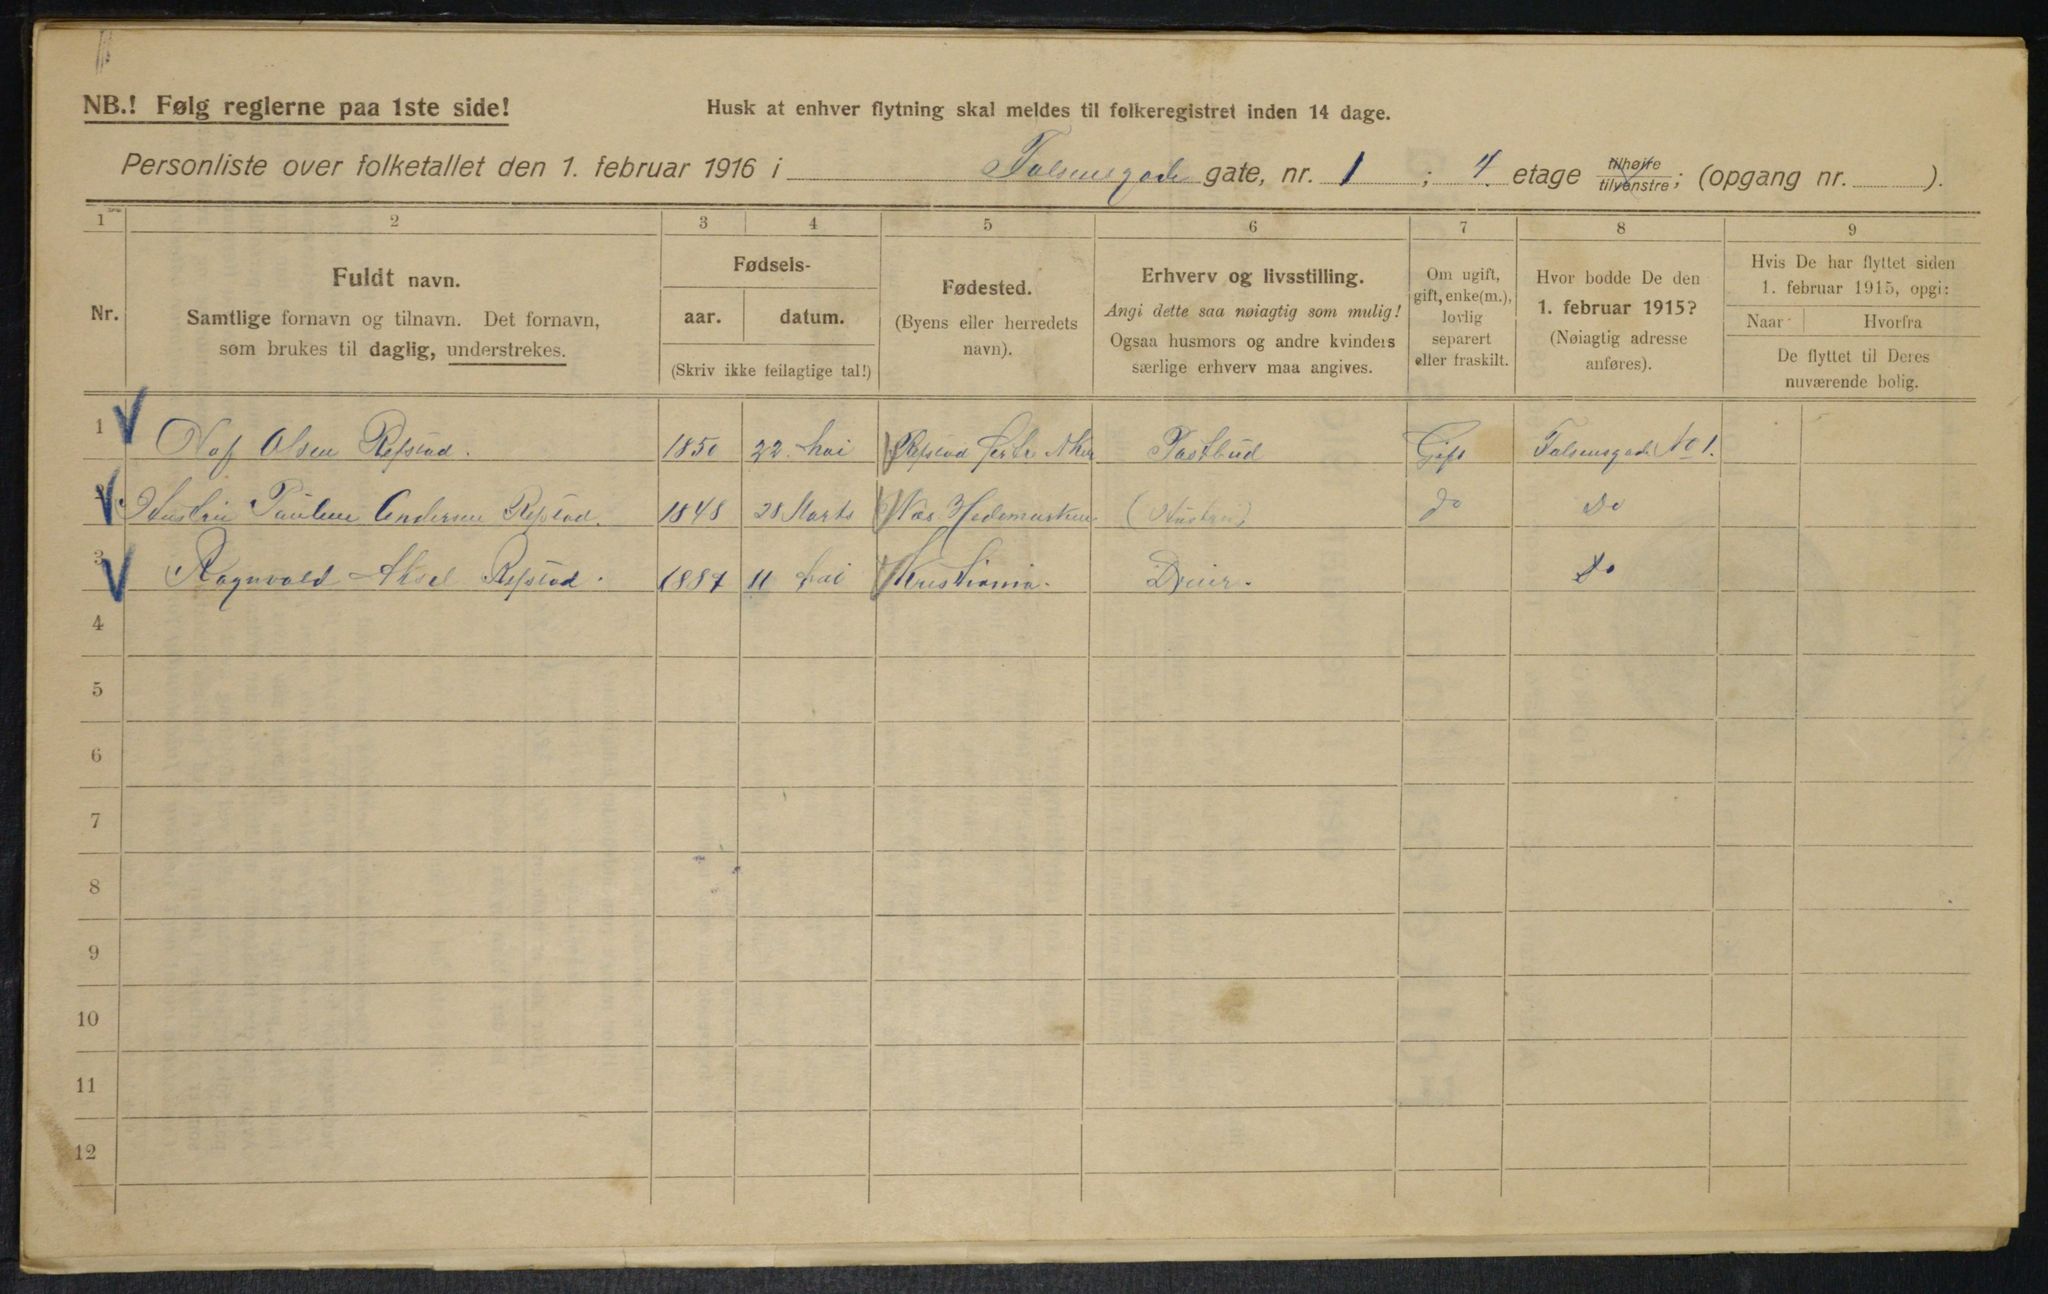 NB.! Følg reglerne paa 1ste side!
Husk at enhver flytning skal meldes til folkeregistret inden 14 dage.
Personliste over folketallet den 1. februar 1916 i Falsensgade gate, nr. 1 ; 4. etage tilhøire tilvenstre; (opgang nr. ).
1 2 3 4 5 6 7 8 9
Nr.
Fuldt navn.
Samtlige fornavn og tilnavn. Det fornavn,
som brukes til daglig, understrekes.
Fødsels-
aar. datum.
(Skriv ikke feilagtige tal!)
Fødested.
(Byens eller herredets
navn).
Erhverv og livsstilling.
Angi dette saa nøiagtig som mulig!
Ogsaa husmors og andre kvinders
særlige erhverv maa angives.
Om ugift,
gift, enke(m.),
lovlig
separert
eller fraskilt.
Hvor bodde De den
1. februar 1915?
(Nøiagtig adresse
anføres).
Hvis De har flyttet siden
1. februar 1915, opgi:
Naar Hvorfra
De flyttet til Deres
nuværende bolig.
1 Olaf Olsen Refstad. 1850 22. Mai Refstad Østre Aker Postbud Gift Falsensgade No 1.
2 Hustru Pauline Andersen Refstad. 1848 28 Marts Næs Hedemarken (Hustru) do Do
3 Ragnvald Aksel Refstad. 1887 11 Mai Kristiania. Do
4
5
6
7
8
9
10
11
12